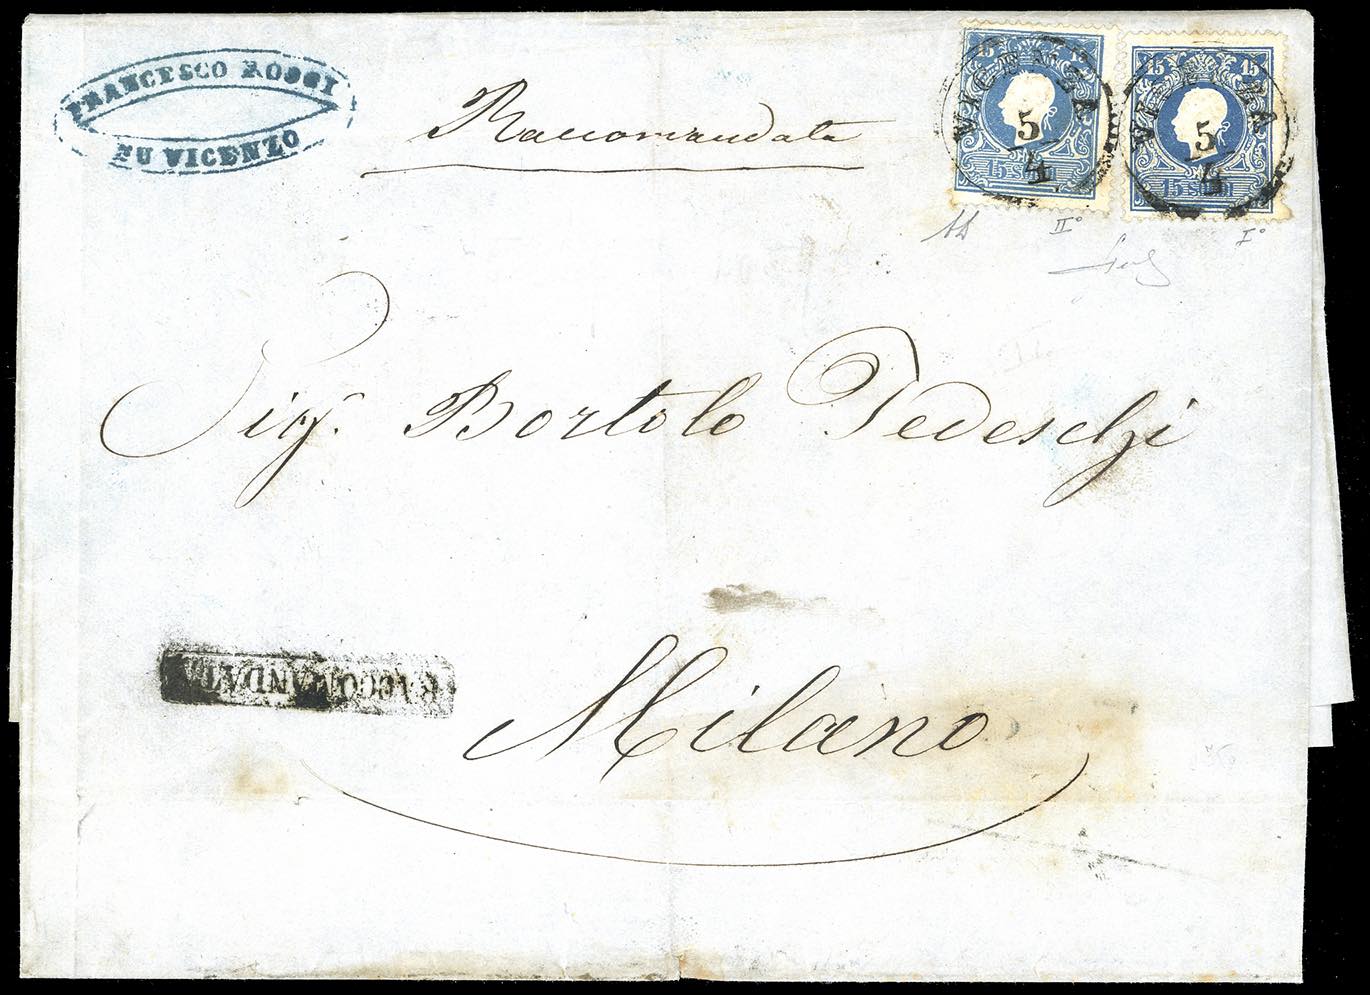 FRANCESCO ROSSI
FU VICENZO
Raccomandata
15 15
VICENZA
5/4
15 SOLDI
15 15
VICENZA
5/4
15 SOLDI
II°
I°
Sigr. Bortolo Tedeschi
RACCOMANDATA
Milano